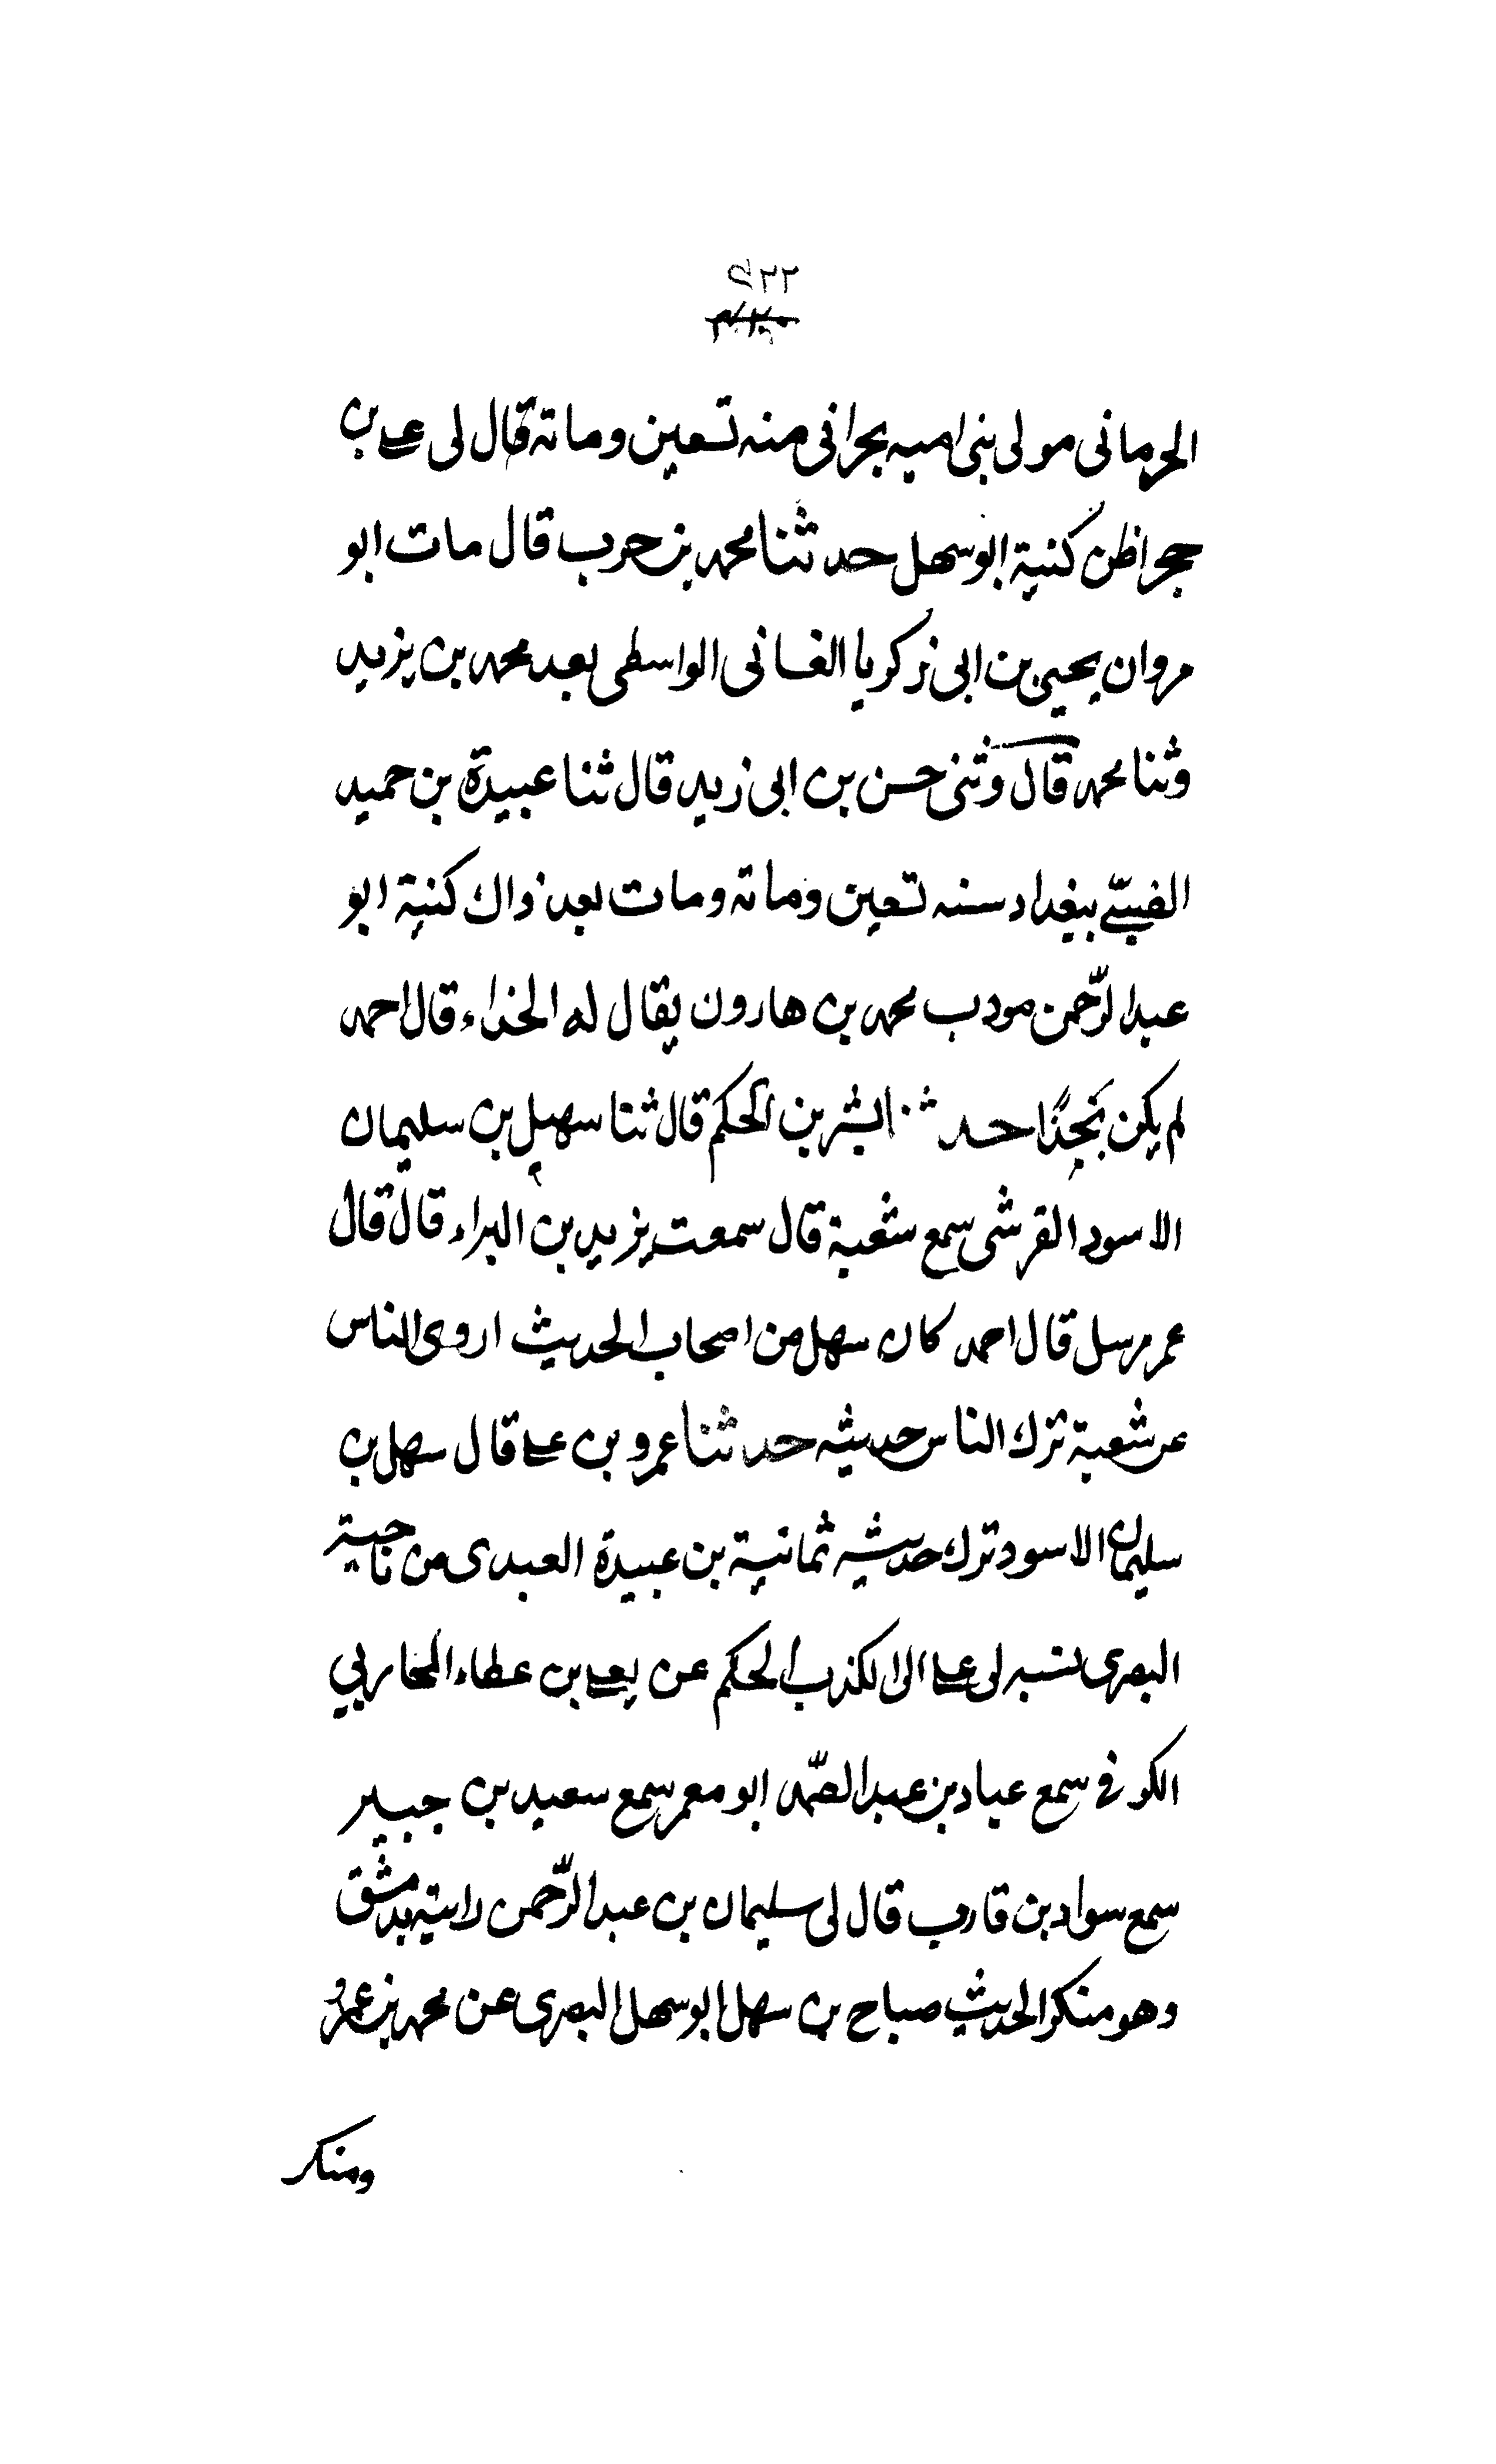 ٥٢٢
الحرمانى مولى بنى اميه بحرانى منه تسعين وماته قال لى على بن
حجر اظن كنية ابو سهل حدثنا محمد بن حرب قال مات ابو
مروان يحيى بن ابى زكريا الغسانى الواسطى بعد محمد بن يزيد
وثنا محمد قال وثنى حسن بن ابى زيد قال ثنا عبيدة بن حميد
الضبىّ ببغداد سنه تسعين وماته ومات بعد ذاك كنية ابو
عبد الرّحمن مودب محمد بن هارون يقال له الحذاء قال احمد
لم يكن بحذّا حدثنا بشر بن الحكم قال ثنا سهيل بن سليمان
الاسود القرشى سمع شعبة قال سمعت يزيد بن البراء قال قال
عمر مرسل قال احمد كان سهل من اصحاب الحديث اروى الناس
عن شعبة ترك الناس حديثه حدثنا عمرو بن على قال سهل بن
سليمان الاسود ترك حديثه ثمانية بن عبيدة العبدى من ناحية
البصرى نسبه لى على الى الكذب الحكم عن يعلى بن عطاء المحاربي
الكوفى سمع عباد بن عبد الصّمد ابو معمر سمع سعيد بن جبير
سمع سواد بن قارب قال لى سليمان بن عبد الرّحمن رايته بدمشق
وهو منكر الحديث صباح بن سهل ابو سهل البصرى عن محمد بن عمرو
ومنكر